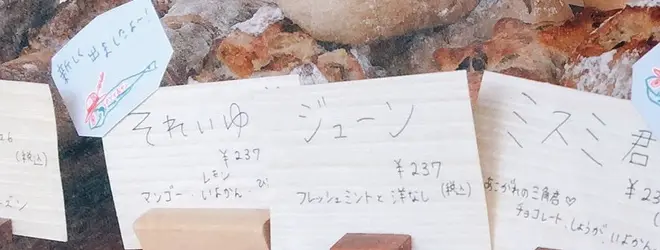 新しく
出ましたよー！
(税込)
それいゆ
¥237
レモン
マンゴー・いよかん・
ジューン
¥237
フレッシュミントと洋なし (税込)
ミスミ君
¥23
あこがれの三角君♡
チョコレート、しょうが、いよかん